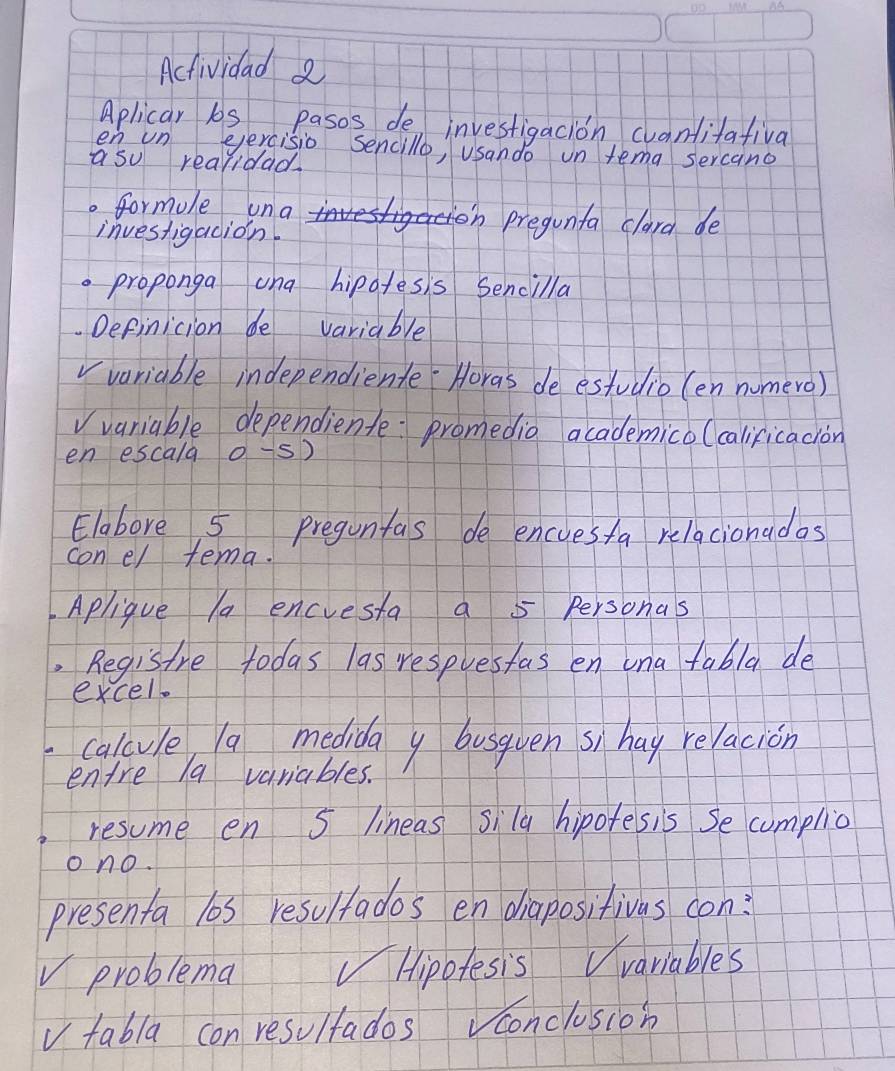 DD MM AA
Actividad 2
Aplicar los pasos de investigación cuantitativa
en un ejercisio sencillo, usando un tema sercano
a su realidad.
• formule una investigación pregunta clara de
investigación.
• proponga una hipotesis sencilla
. Definicion de variable
√ variable independiente: Horas de estudio (en numero)
√ variable dependiente: promedio academico (calificación
en escala 0-5)
Elabore 5 preguntas de encuesta relacionadas
con el tema.
. Aplique la encuesta a 5 personas
. Registre todas las respuestas en una tabla de
excel.
. calcule la medida y busquen si hay relación
entre la variables.
. resume en 5 lineas si la hipotesis se cumplio
o no.
presenta los resultados en diapositivas con:
√ problema √ Hipotesis √ variables
√ tabla con resultados √ conclusión